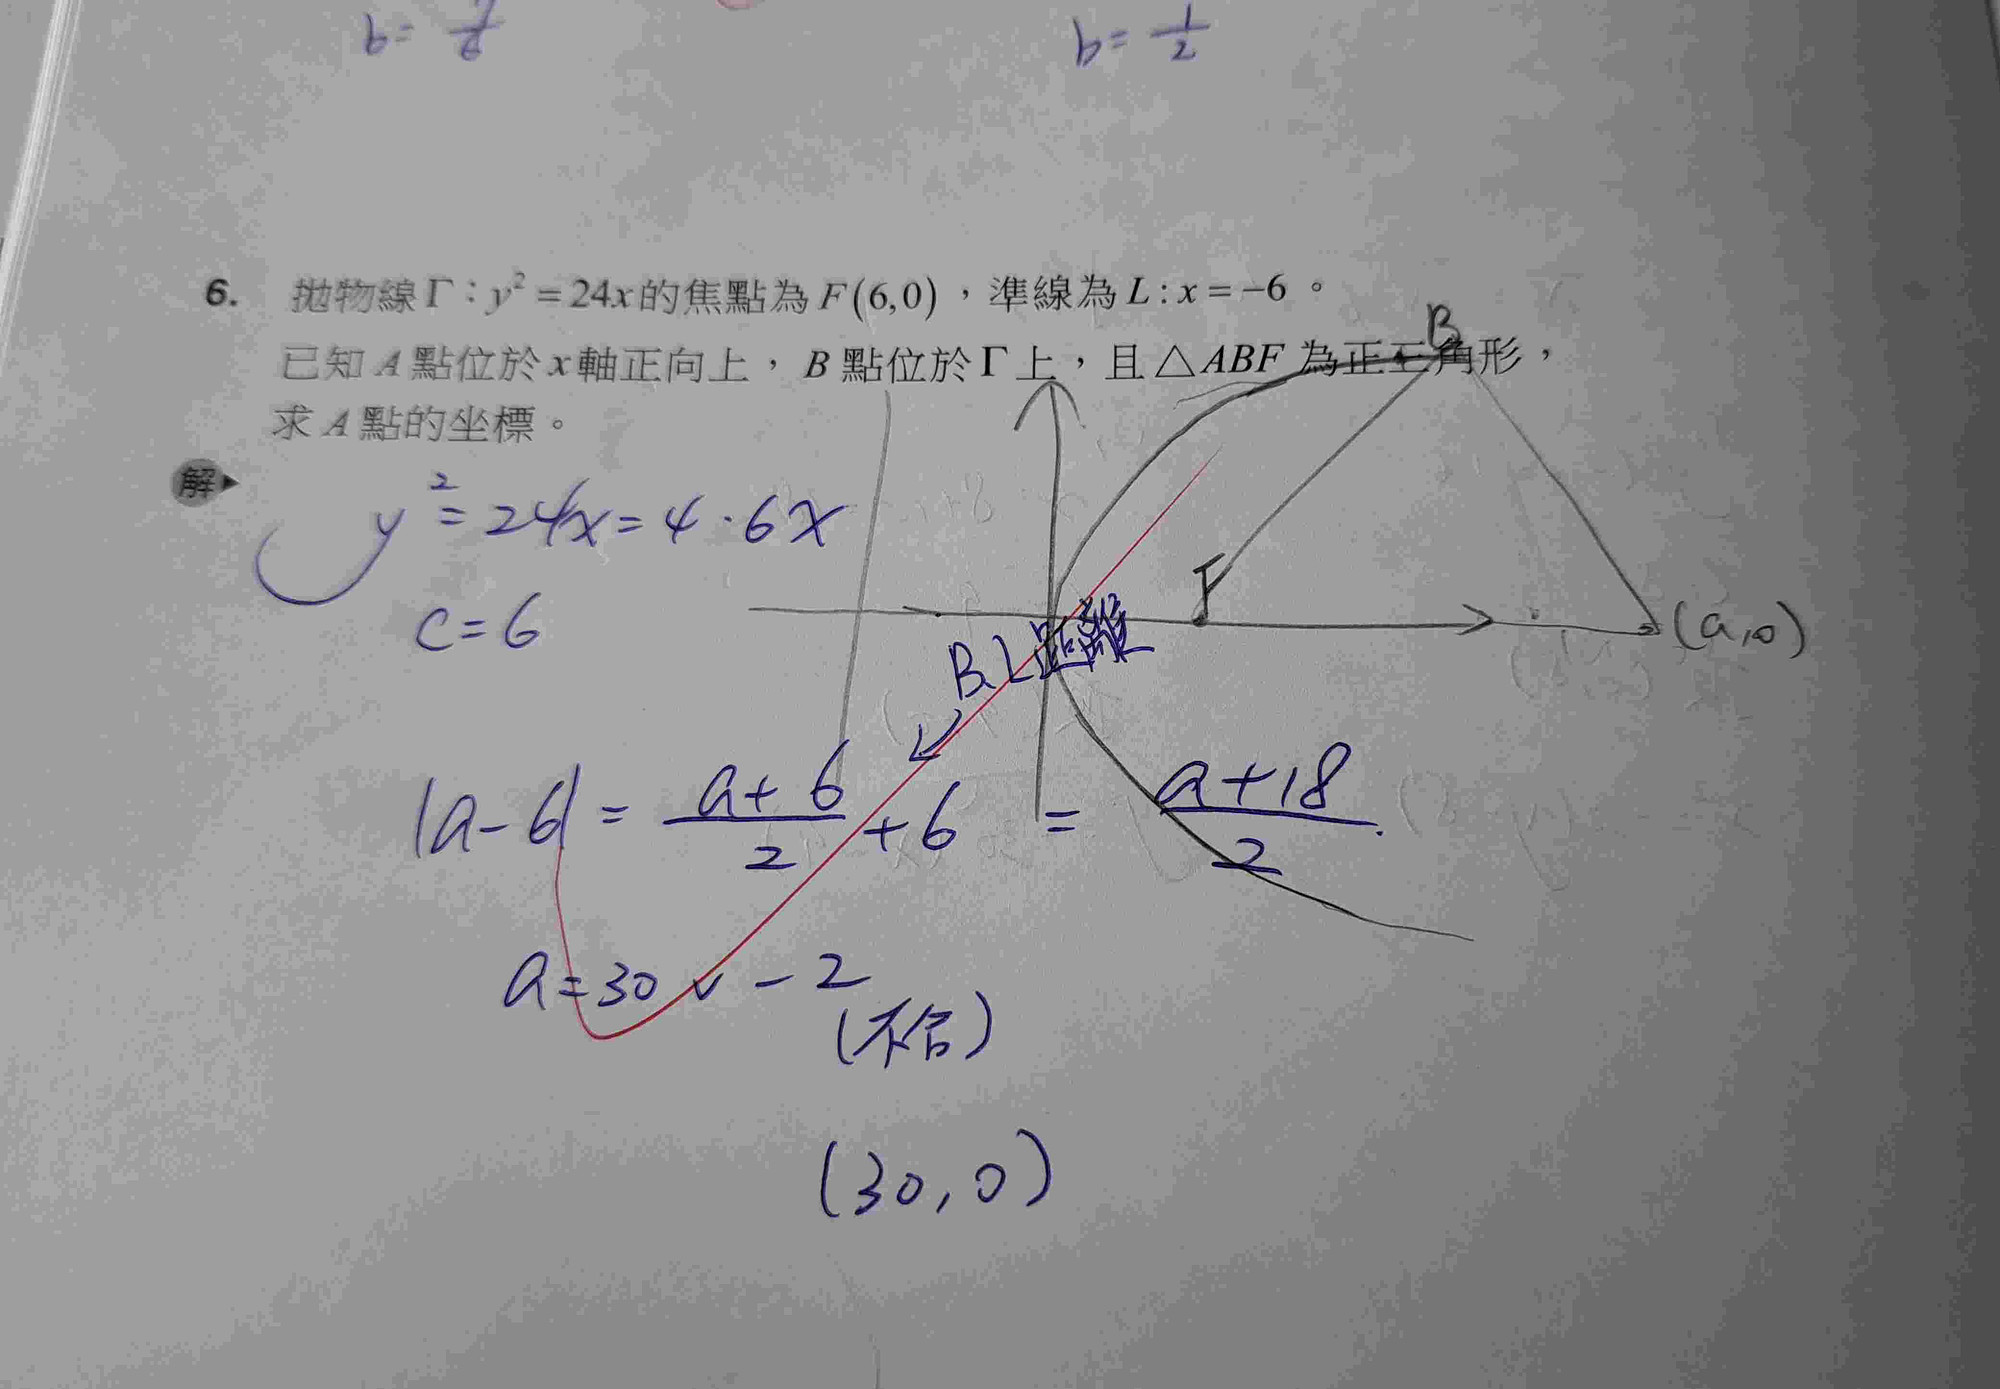 b = 7/6
b = 1/2
6. 拋物線 Γ：y² = 24x 的焦點為 F(6,0)，準線為 L : x = −6。
已知 A 點位於 x 軸正向上，B 點位於 Γ 上，且 △ABF 為正三角形，
求 A 點的坐標。
解
B
y² = 24x = 4 · 6x
F
(a,0)
c = 6
B.L距離
|a−6| = (a+6)/2 + 6 = (a+18)/2
a = 30 ∨ −2
(不合)
(30,0)